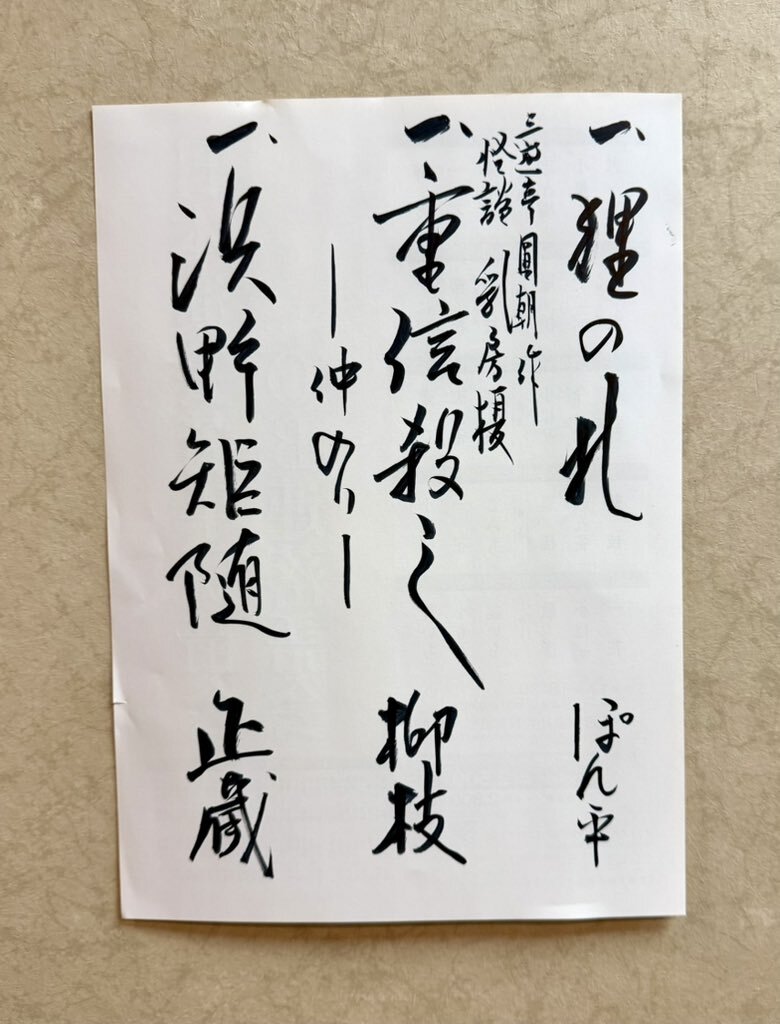 一、狸の札 ぽん平
三遊亭圓朝作
怪談 乳房榎
一、重信殺し 柳枝
―仲入り―
一、浜野矩随 正蔵